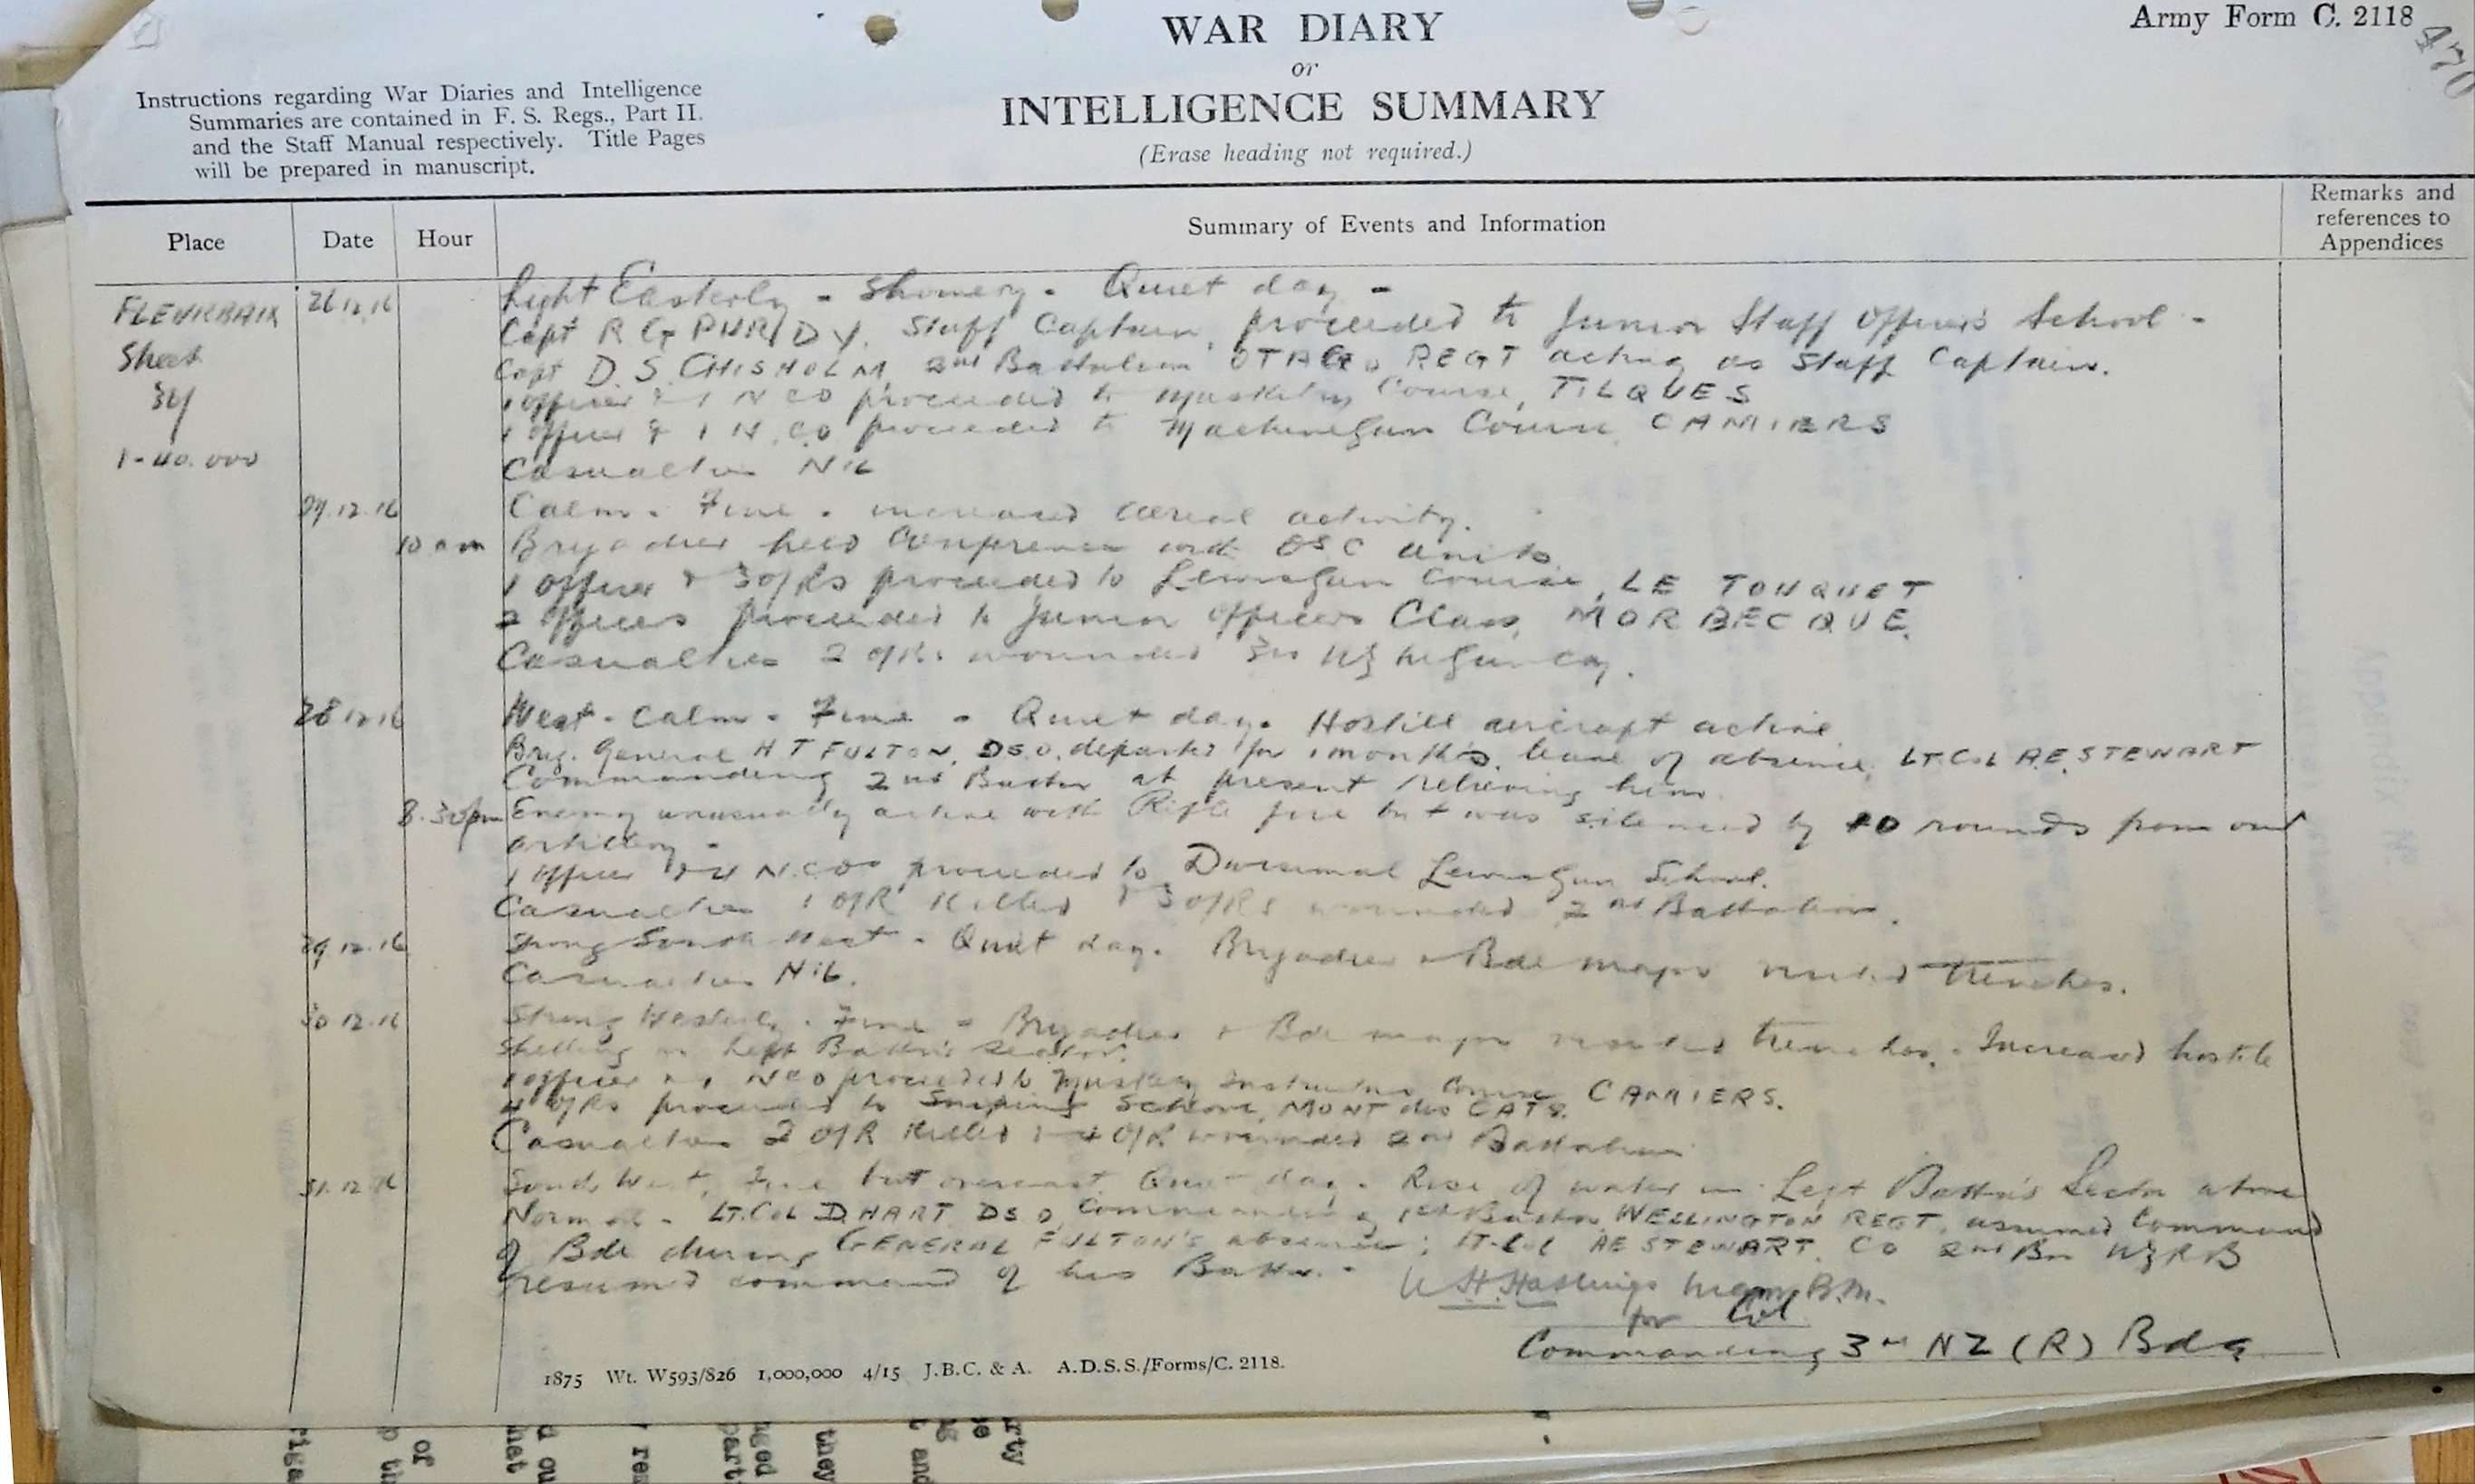 WAR DIARY
or
INTELLIGENCE SUMMARY
(Erase heading not required.)
Army Form C. 2118
470
Instructions regarding War Diaries and Intelligence
Summaries are contained in F. S. Regs., Part II.
and the Staff Manual respectively. Title Pages
will be prepared in manuscript.
Place
Date
Hour
Summary of Events and Information
Remarks and
references to
Appendices
FLEURBAIX
Sheet
36
1-40.000
26.12.16
Light Easterly - Showery - Quiet day -
Capt R G PURDY. Staff Captain, proceeded to Junior Staff Officers School -
Capt D. S. CHISHOLM 2nd Battalion OTAGO REGT acting as Staff Captain.
1 officer & 1 NCO proceeded to Musketry Course, TILQUES
1 officer & 1 N.CO proceeded to MachineGun Course CAMIERS
Casualties Nil
27.12.16
Calm. Fine. increased aerial activity.
10 am
Brigadier held Conference with OsC units.
1 officer & 3 O/Rs proceeded to LewisGun Course, LE TOUQUET
2 officers proceeded to Junior Officers Class, MORBECQUE.
Casualties 2 O/Rs wounded 3rd NZ McGun Coy.
28.12.16
West - Calm - Fine - Quiet day. Hostile aircraft active
Brig. General H T FULTON, DSO. departed for 1 months leave of absence, LT.Col A.E. STEWART
Commanding 2nd Battn at present relieving him.
8.30pm
Enemy unusually active with Rifle fire but was silenced by 40 rounds from our
artillery -
1 officer & 4 N.COs proceeded to Divisional LewisGun School.
Casualties 1 O/R Killed & 3 O/Rs wounded 2nd Battalion.
29.12.16
Strong South West - Quiet day. Brigadier & Bde major visited trenches.
Casualties Nil.
30.12.16
Strong Westerly. Fine - Brigadier & Bde major visited trenches. Increased hostile
shelling on Left Battn's sector.
1 officer & 1 NCO proceeded to Musketry Course CAMIERS.
4 O/Rs proceeded to Sniping School, MONT des CATS.
Casualties 2 O/R Killed & 4 O/R wounded 2nd Battalion
31.12.16
South West, Fine but overcast Quiet day. Rise of water in Left Battn's Sector above
Normal - LT.Col D.HART DSO Commanding 1st Battn WELLINGTON REGT. assumed Command
of Bde during GENERAL FULTON'S absence; Lt-Col AE STEWART CO 2nd Bn NZRB
resumed command of his Battn. -
W H Hastings Major B.M.
for Col
Commanding 3rd NZ (R) Bde
1875 Wt. W593/826 1,000,000 4/15 J.B.C. & A. A.D.S.S./Forms/C. 2118.